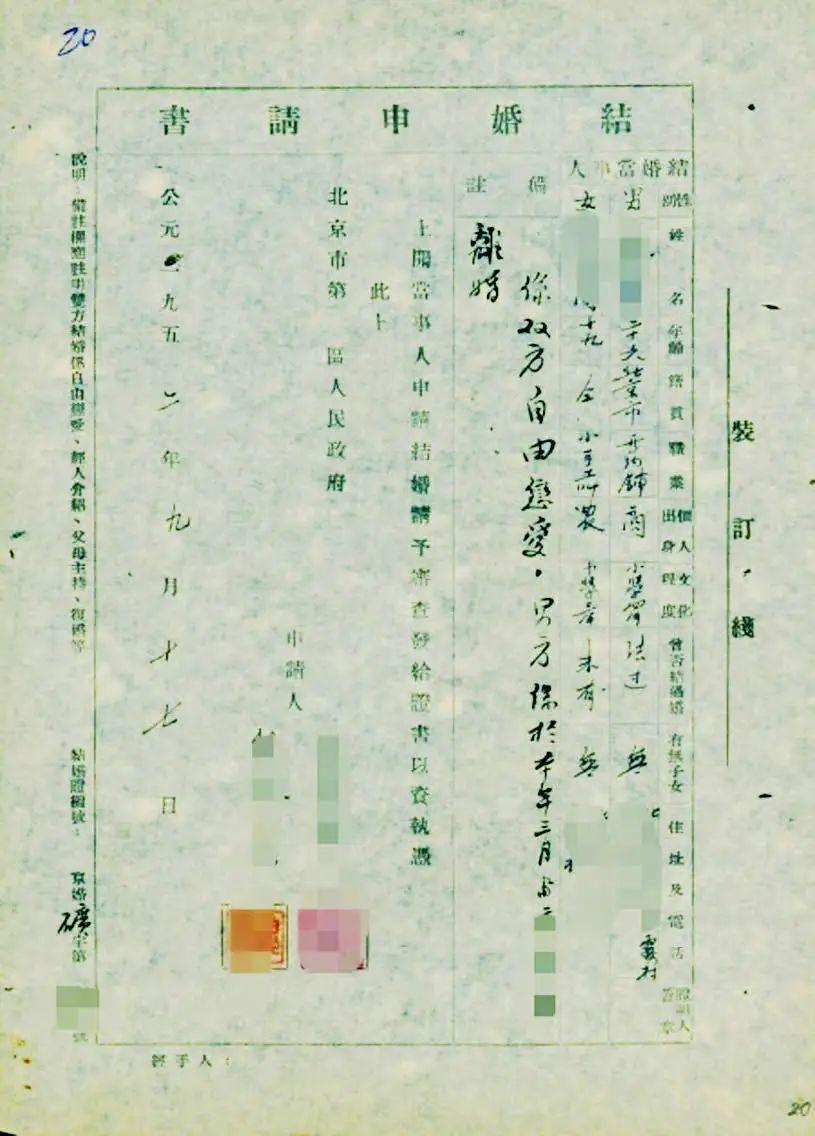 20
裝訂線
結婚申請書
結婚當事人
性別
姓名
年齡
籍貫
職業
個人出身
文化程度
曾否結過婚
有無子女
住址及電話
證明人蓋章
男
二十六
北京市
商
小學
結过
無
女
十九
仝
農
未有
無
備註
係双方自由戀愛，男方係於本年三月与
離婚
上開當事人申請結婚請予審查發給證書以資執憑
此上
北京市第 區人民政府
申請人
公元一九五二年九月十七日
說明：備註欄應註明雙方結婚係自由戀愛、經人介紹、父母主持、復婚等
結婚證編號：京婚礦字第 號
經手人：
20